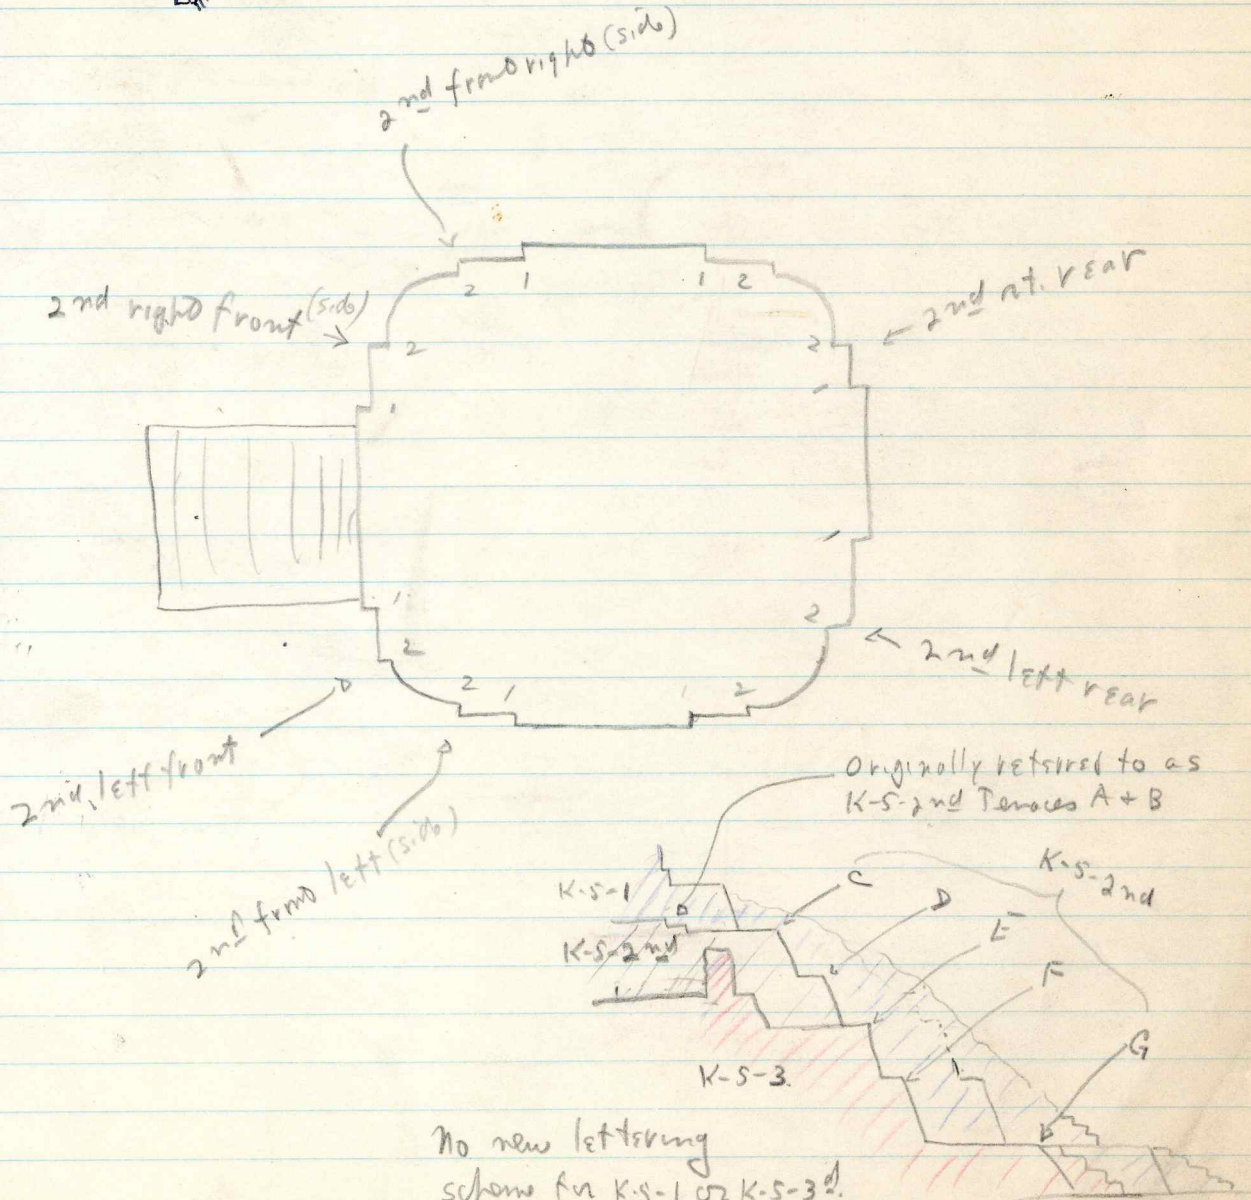 2nd front right (side)
2nd right front (side)
2nd rt. rear
2 1 1 2
2 2
1 1
1 1
2 2
2 1 1 2
2nd left rear
2nd left front
2nd front left (side)
Originally referred to as
K-5-2nd Terraces A + B
K-5-1
K-5-2nd
C
D
E
F
G
K-5-2nd
K-5-3.
No new lettering
scheme for K-5-1 or K-5-3d.